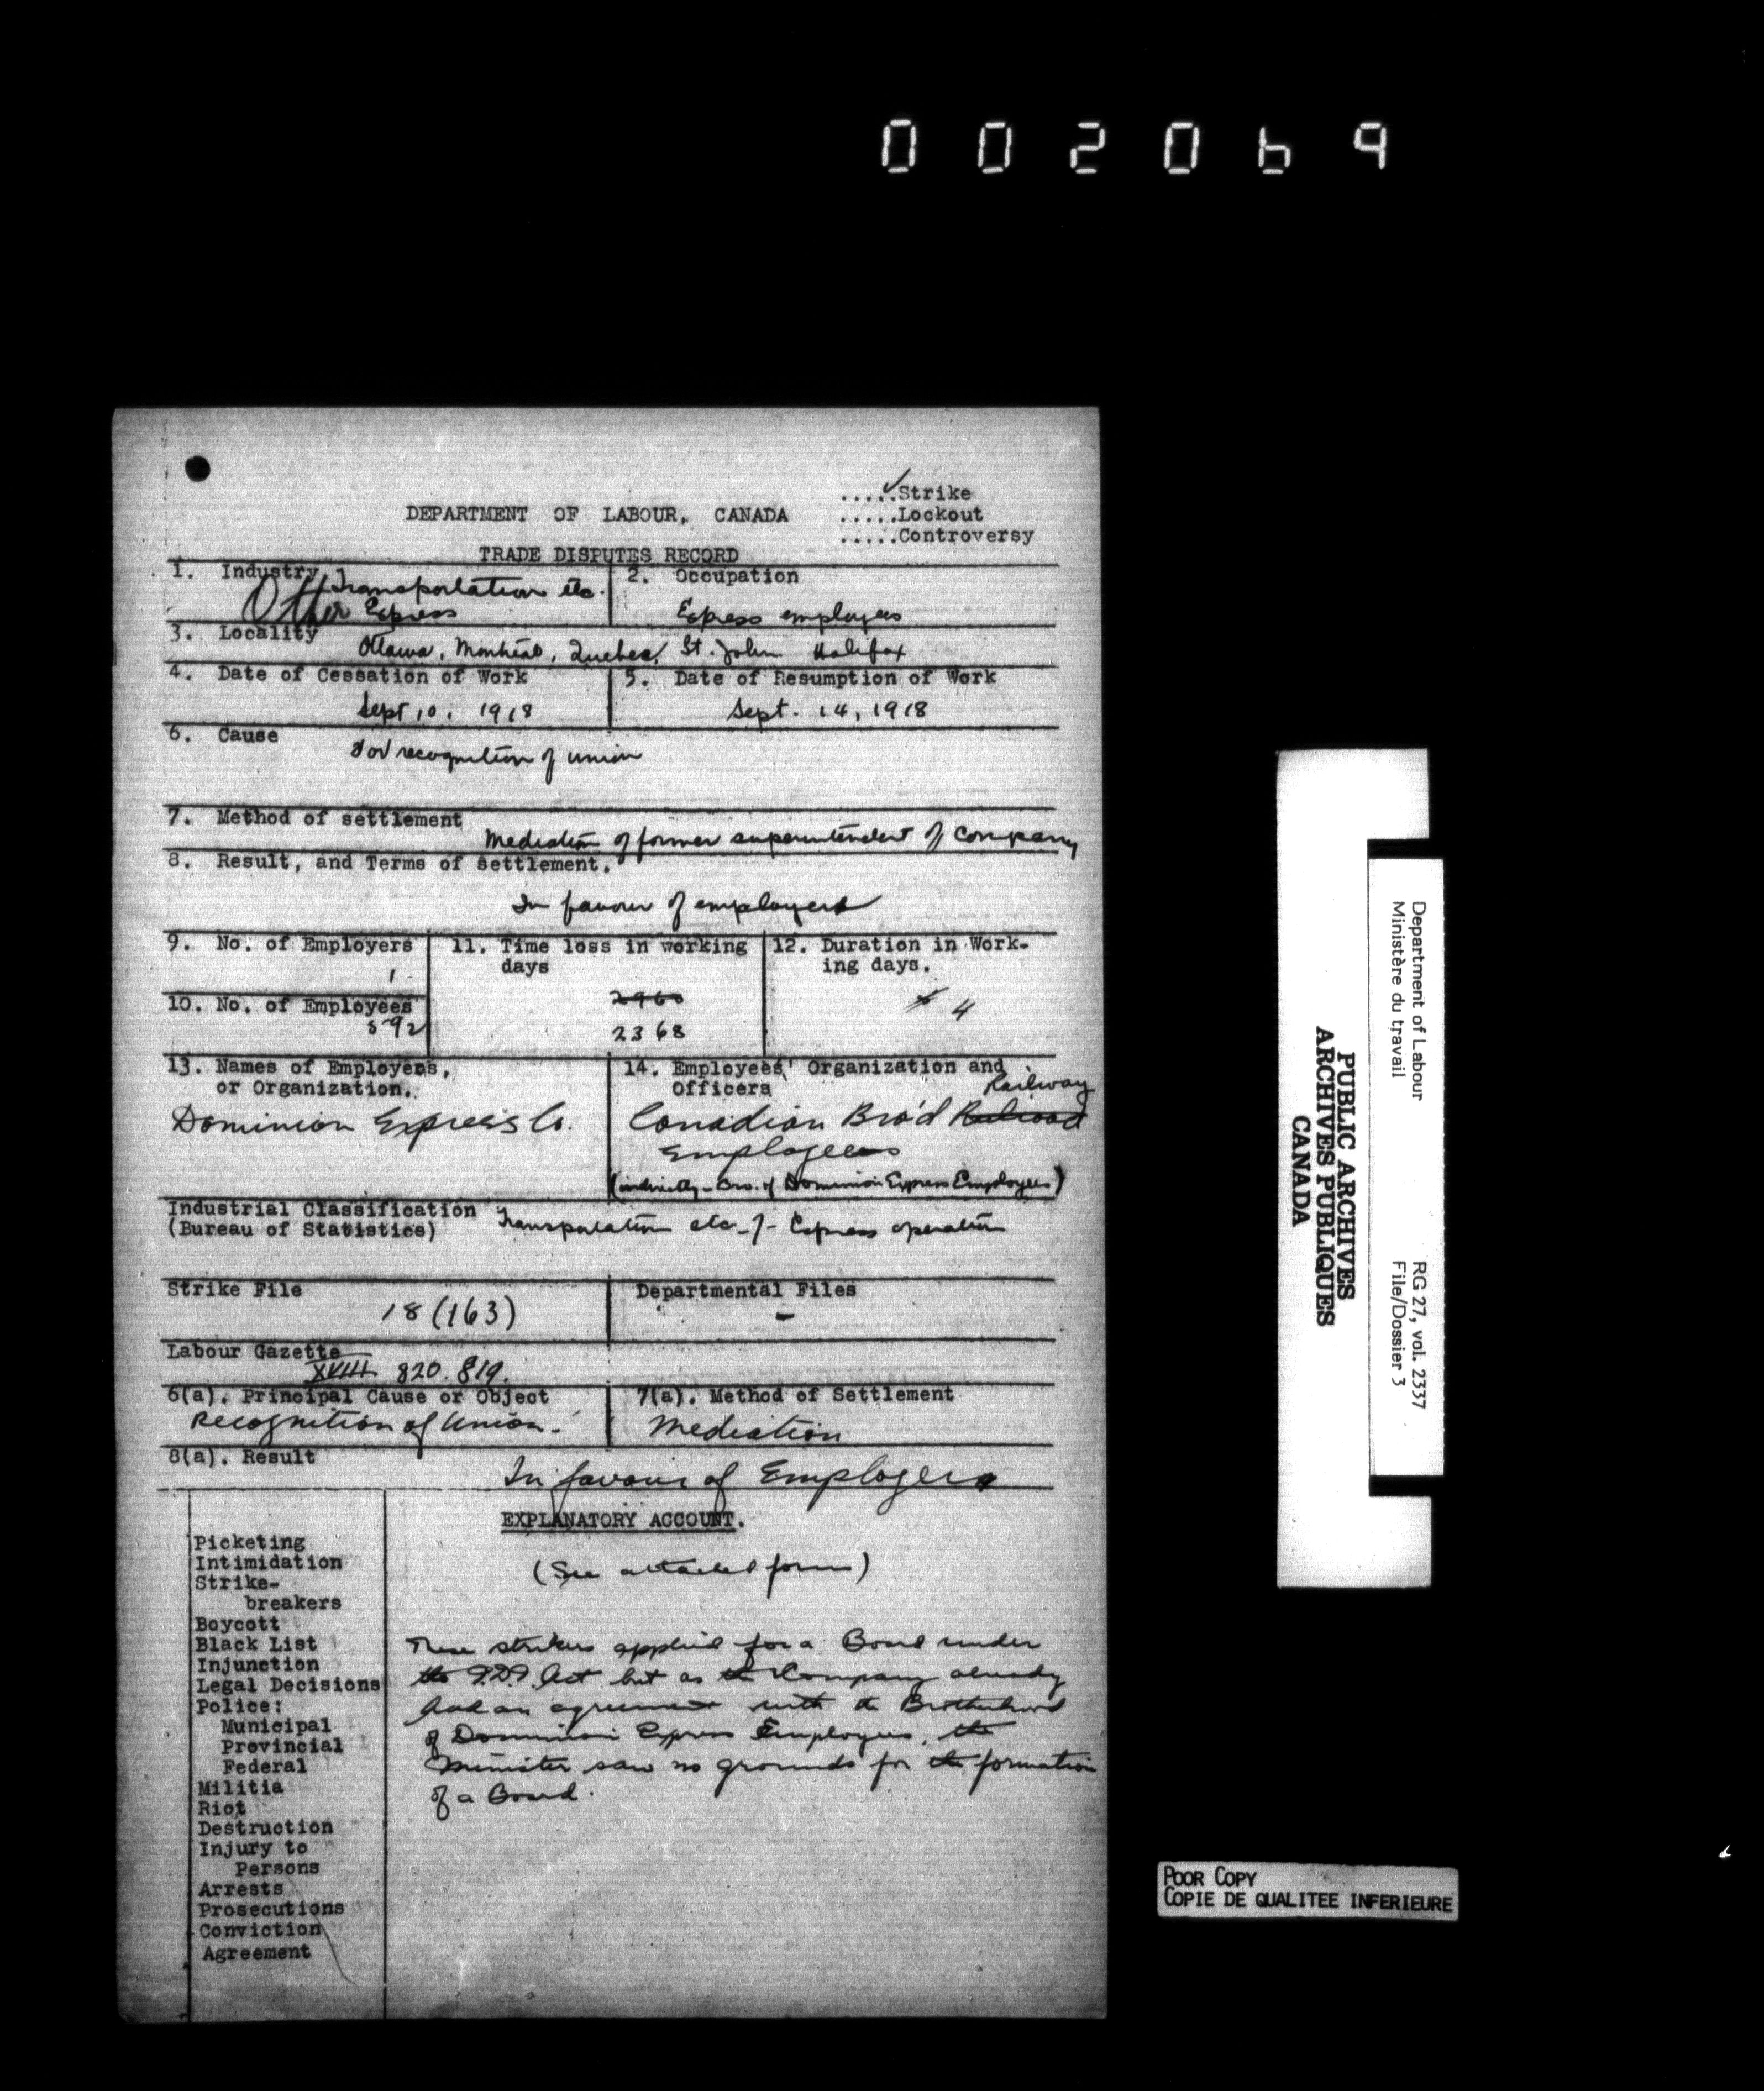 002069
.....✓Strike
DEPARTMENT OF LABOUR, CANADA
.....Lockout
.....Controversy
TRADE DISPUTES RECORD
1. Industry
Transportation etc.
Other Express
2. Occupation
Express employees
3. Locality
Ottawa, Montreal, Quebec, St. John Halifax
4. Date of Cessation of Work
Sept 10, 1918
5. Date of Resumption of Work
Sept. 14, 1918
6. Cause
For recognition of union
7. Method of settlement
Mediation of former superintendent of Company
8. Result, and Terms of settlement.
In favour of employers
9. No. of Employers
1
10. No. of Employees
592
11. Time loss in working
days
2960
2368
12. Duration in Work-
ing days.
4
13. Names of Employers,
or Organization.
Dominion Express Co.
14. Employees' Organization and
Officers
Railway
Canadian Bro'd Railroad
Employees
(indirectly - Bro. of Dominion Express Employees)
Industrial Classification
(Bureau of Statistics)
Transportation etc - Express operation
Strike File
18 (163)
Departmental Files
-
Labour Gazette
XVIII 820. 819.
6(a). Principal Cause or Object
Recognition of Union.
7(a). Method of Settlement
Mediation
8(a). Result
In favour of Employers
EXPLANATORY ACCOUNT.
Picketing
Intimidation
Strike-
breakers
Boycott
Black List
Injunction
Legal Decisions
Police:
Municipal
Provincial
Federal
Militia
Riot
Destruction
Injury to
Persons
Arrests
Prosecutions
Conviction
Agreement
(See attached form)
These strikers applied for a Board under
the I.D.I. Act but as the Company already
had an agreement with the Brotherhood
of Dominion Express Employees, the
Minister saw no grounds for the formation
of a Board.
Department of Labour
Ministère du travail
RG 27, vol. 2337
File/Dossier 3
PUBLIC ARCHIVES
ARCHIVES PUBLIQUES
CANADA
POOR COPY
COPIE DE QUALITEE INFERIEURE